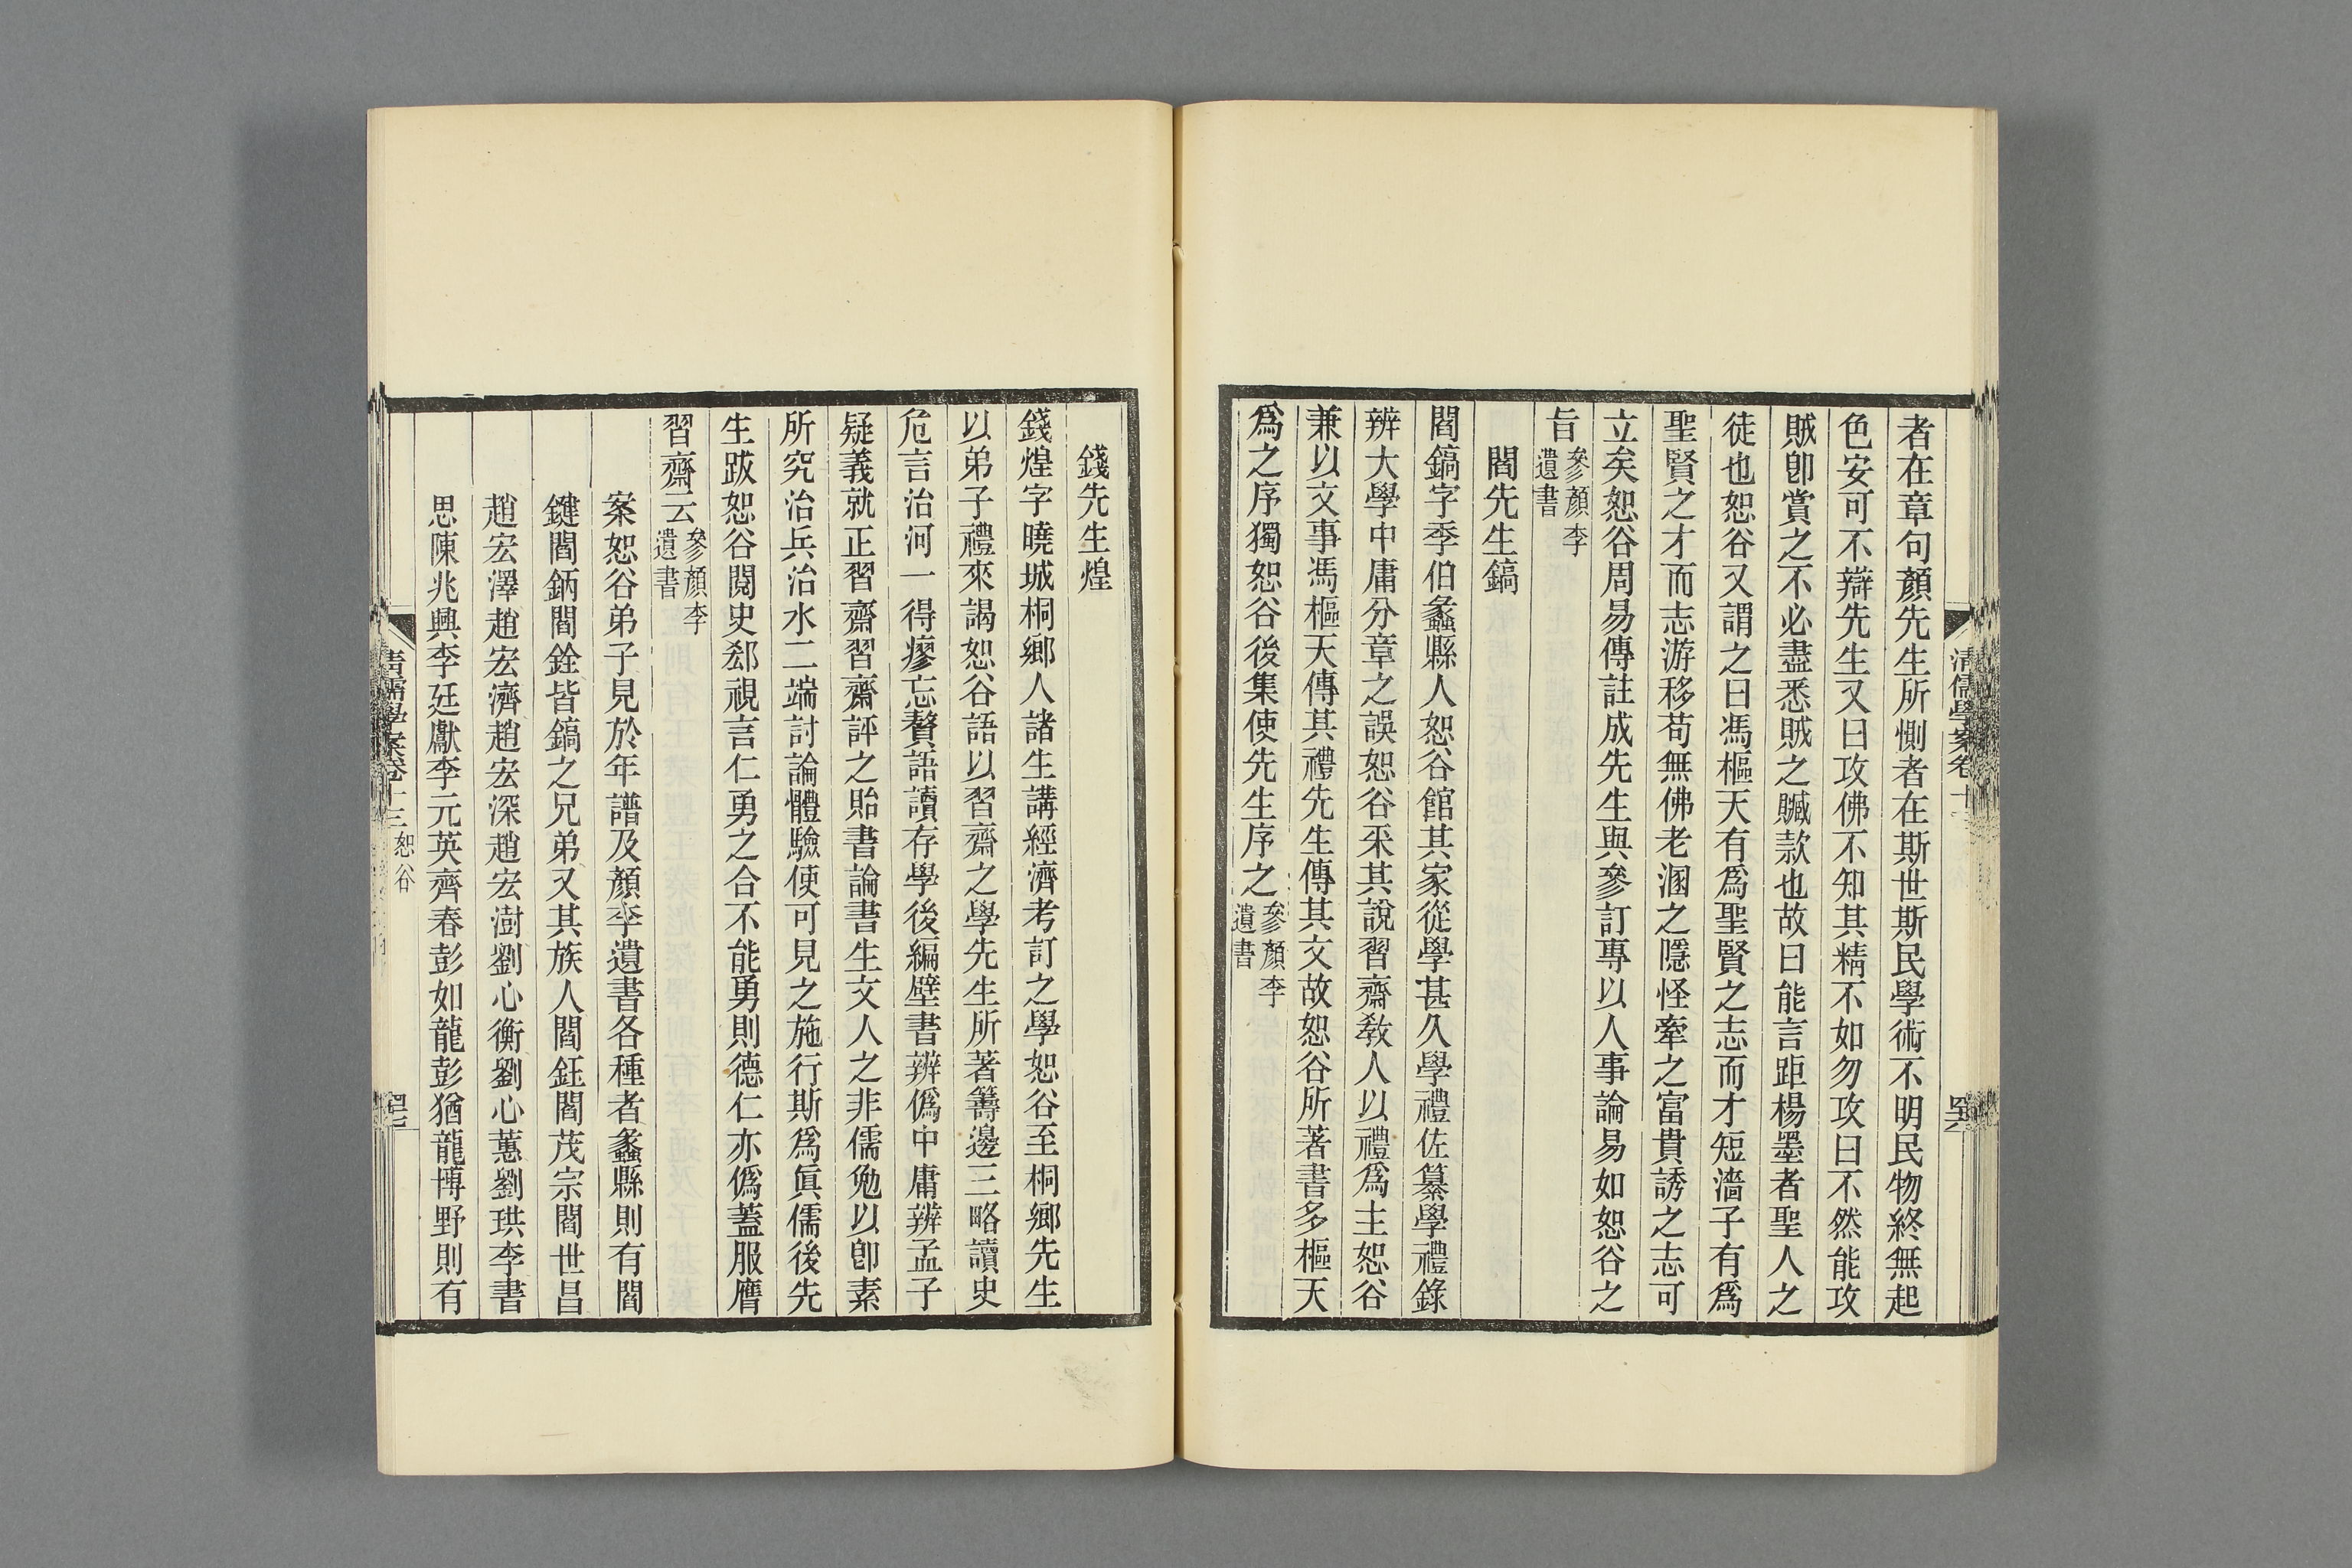 者在章句顏先生所惻者在斯世斯民學術不明民物終無起
色安可不辯先生又曰攻佛不知其精不如勿攻曰不然能攻
賊卽賞之不必盡悉賊之贓款也故曰能言距楊墨者聖人之
徒也恕谷又謂之曰馮樞天有爲聖賢之志而才短濇子有爲
聖賢之才而志游移苟無佛老溷之隱怪牽之富貴誘之志可
立矣恕谷周易傳註成先生與參訂專以人事論易如恕谷之
旨參顏李遺書
閻先生鎬
閻鎬字季伯蠡縣人恕谷館其家從學甚久學禮佐纂學禮錄
辨大學中庸分章之誤恕谷采其說習齋敎人以禮爲主恕谷
兼以文事馮樞天傳其禮先生傳其文故恕谷所著書多樞天
爲之序獨恕谷後集使先生序之參顏李遺書
清儒學案卷十
錢先生煌
錢煌字曉城桐鄉人諸生講經濟考訂之學恕谷至桐鄉先生
以弟子禮來謁恕谷語以習齋之學先生所著籌邊三略讀史
危言治河一得瘳忘贅語讀存學後編壁書辨僞中庸辨孟子
疑義就正習齋習齋評之貽書論書生文人之非儒勉以卽素
所究治兵治水二端討論體驗使可見之施行斯爲眞儒後先
生跋恕谷閱史郄視言仁勇之合不能勇則德仁亦僞蓋服膺
習齋云參顏李遺書
案恕谷弟子見於年譜及顏李遺書各種者蠡縣則有閻
鍵閻鈵閻銓皆鎬之兄弟又其族人閻鈺閻茂宗閻世昌
趙宏澤趙宏濟趙宏深趙宏澍劉心衡劉心蕙劉珙李書
思陳兆興李廷獻李元英齊春彭如龍彭猶龍博野則有
清儒學案卷十三 恕谷